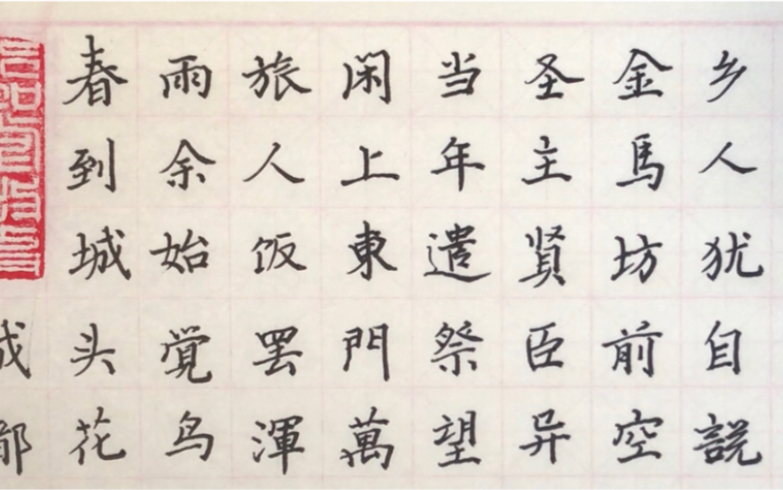 成都
春到城头花
雨余始覚鸟
旅人饭罢渾
闲上東門萬
当年遣祭望
圣主贤臣异
金馬坊前空
乡人犹自説